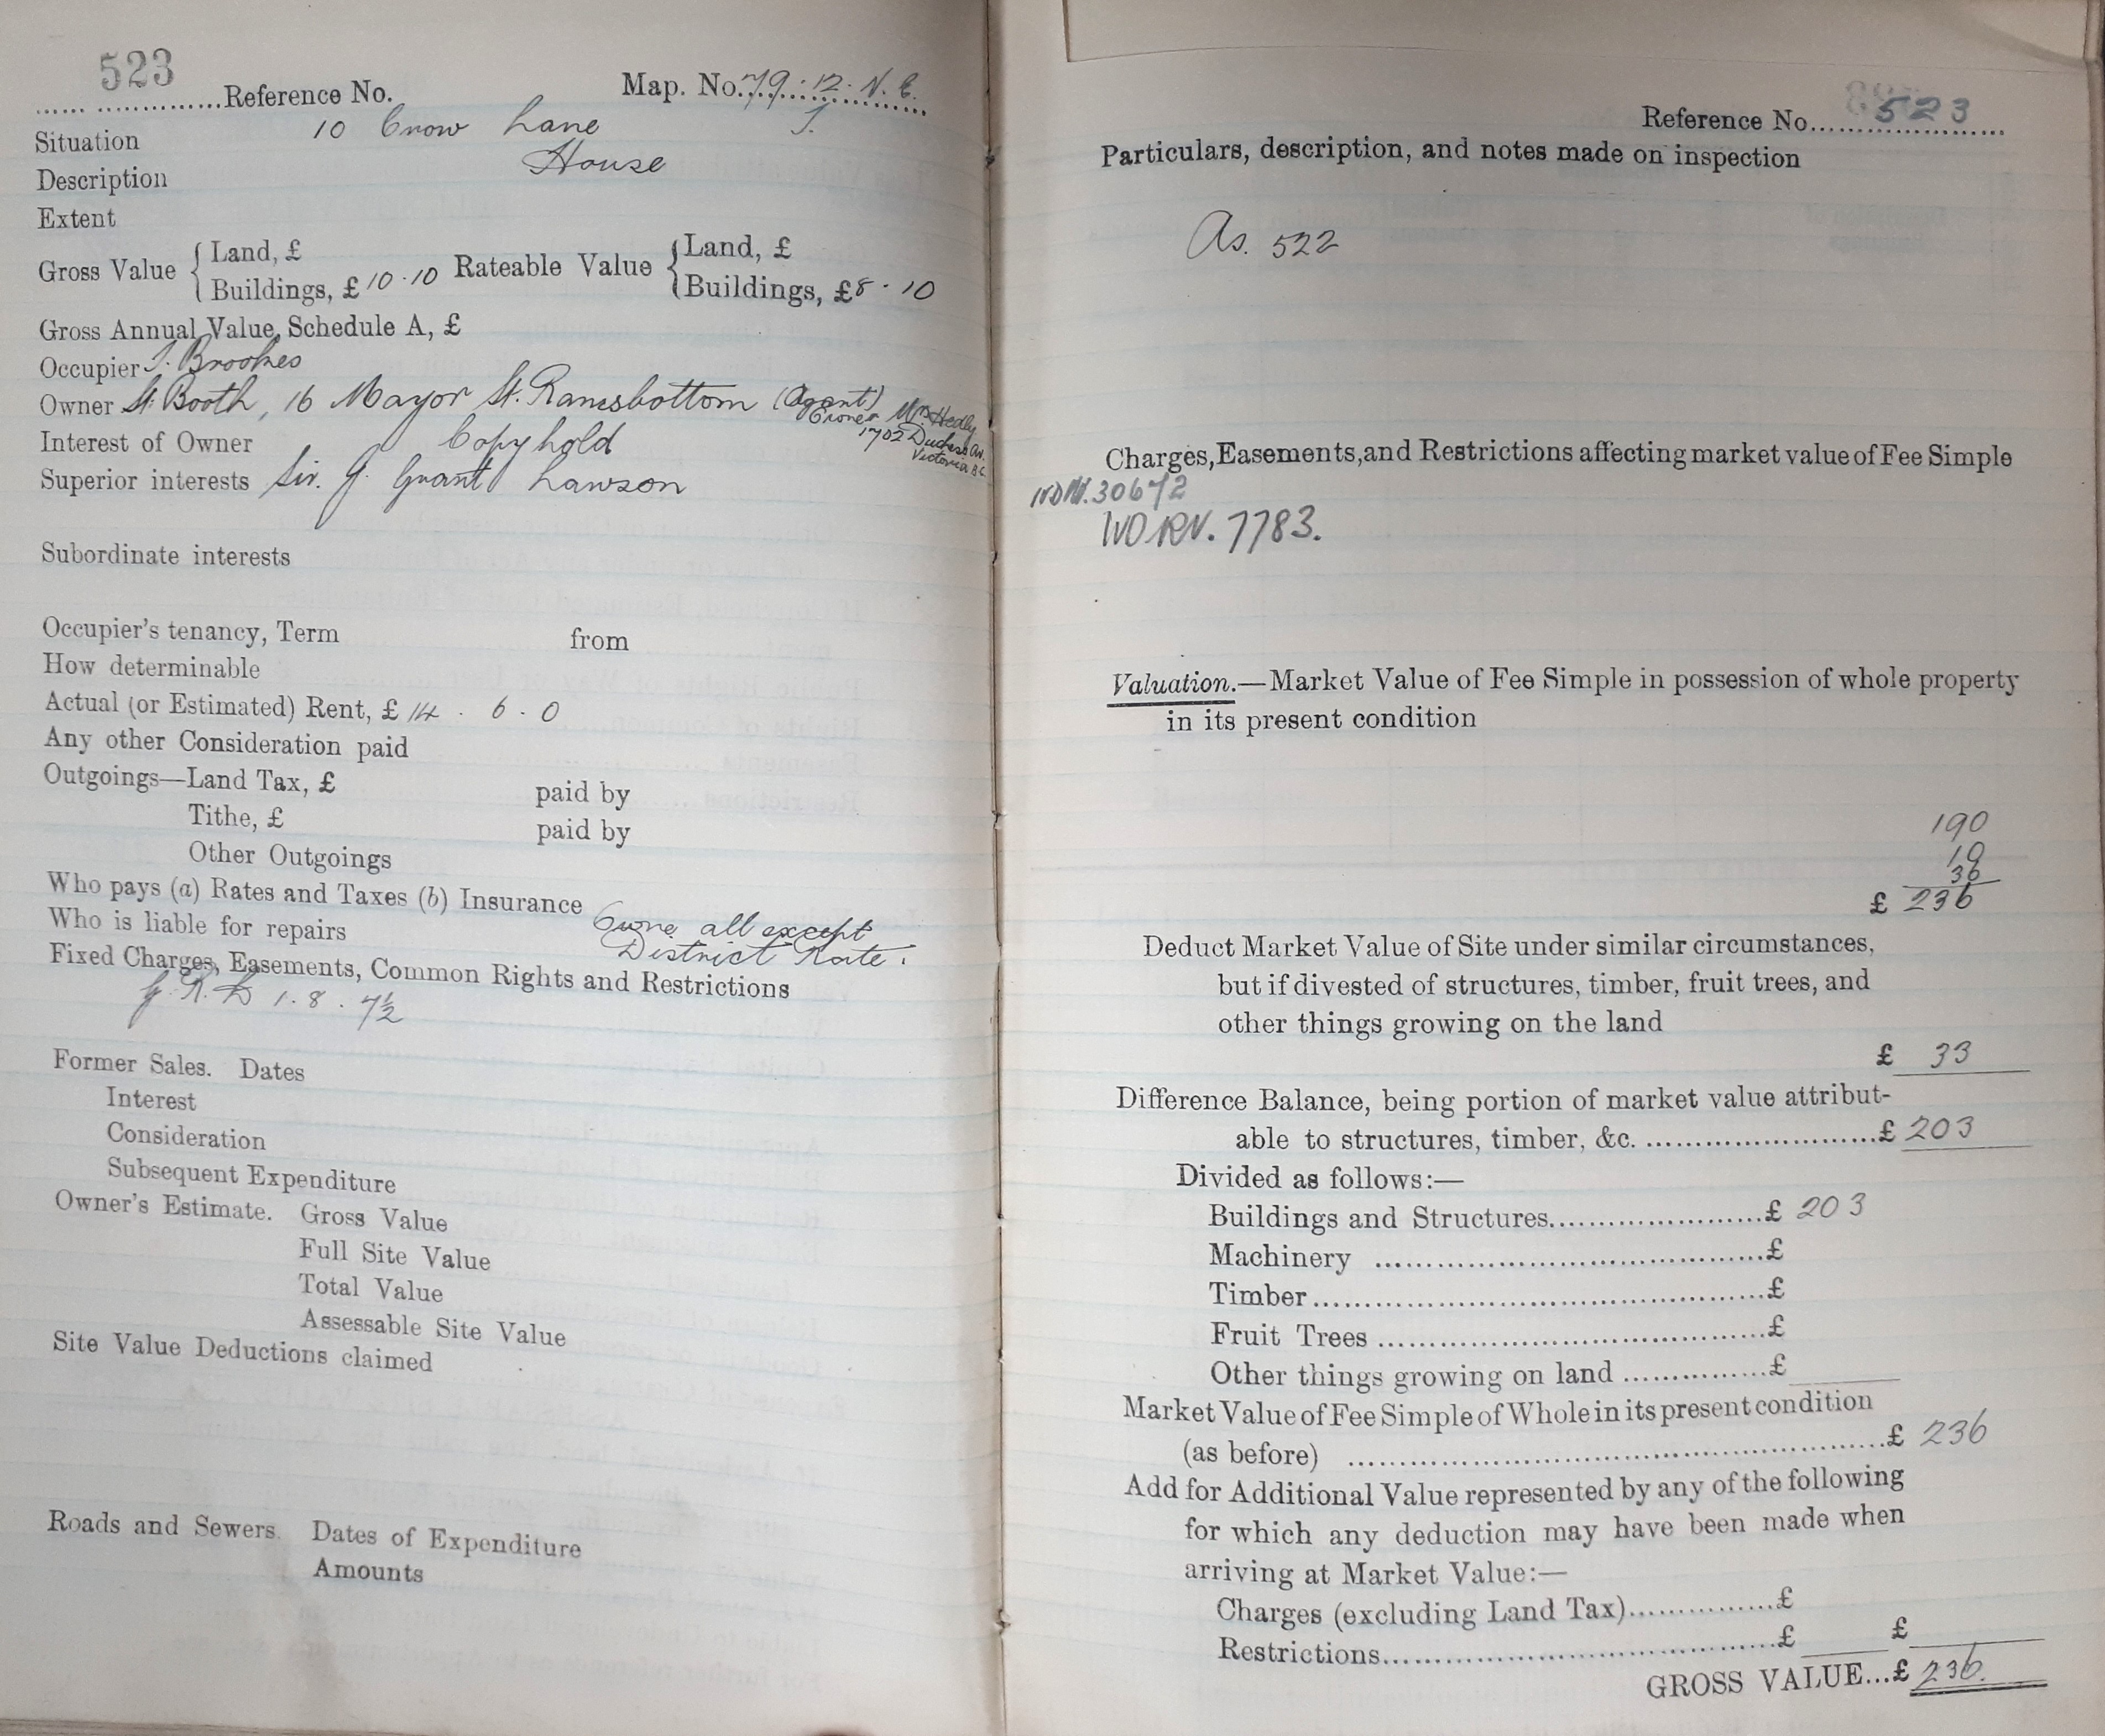 523
Reference No. Map. No. 79.12. N.E.
Situation 10 Crow Lane
Description House
Extent
Gross Value { Land, £ Rateable Value { Land, £
Buildings, £ 10.10 Buildings, £ 8.10
Gross Annual Value, Schedule A, £
Occupier J. Brookes
Owner Booth, 16 Mayor St. Ramsbottom (Agent)
Owner Mrs Hedly
1702 Duchess Av.
Victoria B.C.
Interest of Owner Copyhold
Superior interests Sir. J. Grant Lawson
Subordinate interests
Occupier's tenancy, Term from
How determinable
Actual (or Estimated) Rent, £ 14 . 6 . 0
Any other Consideration paid
Outgoings—Land Tax, £ paid by
Tithe, £ paid by
Other Outgoings
Who pays (a) Rates and Taxes (b) Insurance
Who is liable for repairs all except
District Rate.
Fixed Charges, Easements, Common Rights and Restrictions
G.R. 1 . 8 . 7½
Former Sales. Dates
Interest
Consideration
Subsequent Expenditure
Owner's Estimate. Gross Value
Full Site Value
Total Value
Assessable Site Value
Site Value Deductions claimed
Roads and Sewers. Dates of Expenditure
Amounts
Reference No. 523
Particulars, description, and notes made on inspection
As. 522
Charges, Easements, and Restrictions affecting market value of Fee Simple
30672
IVD RV. 7783.
Valuation.—Market Value of Fee Simple in possession of whole property
in its present condition
190
10
36
£ 236
Deduct Market Value of Site under similar circumstances,
but if divested of structures, timber, fruit trees, and
other things growing on the land
£ 33
Difference Balance, being portion of market value attribut-
able to structures, timber, &c. £ 203
Divided as follows:—
Buildings and Structures £ 203
Machinery £
Timber £
Fruit Trees £
Other things growing on land £
Market Value of Fee Simple of Whole in its present condition
(as before) £ 236
Add for Additional Value represented by any of the following
for which any deduction may have been made when
arriving at Market Value:—
Charges (excluding Land Tax) £
Restrictions £ £
GROSS VALUE...£ 236.